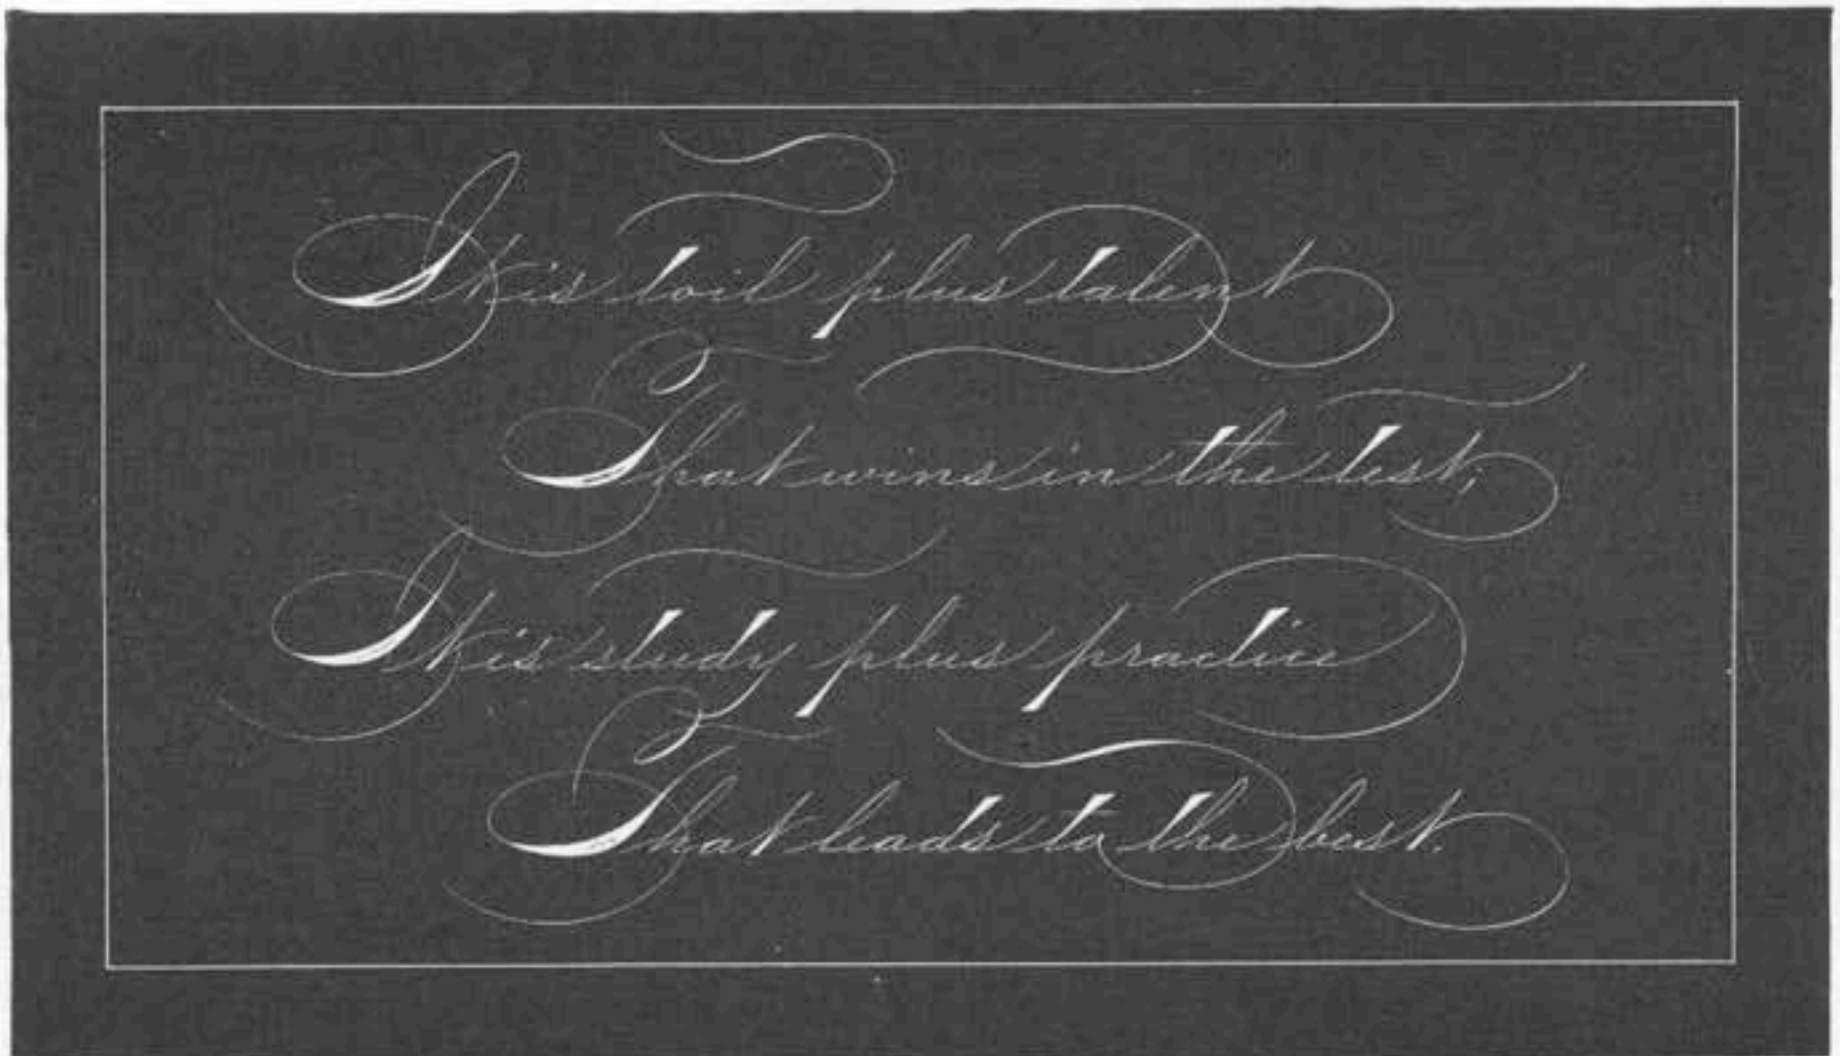 It is toil plus talent
That wins in the test;
It is study plus practice
That leads to the best.